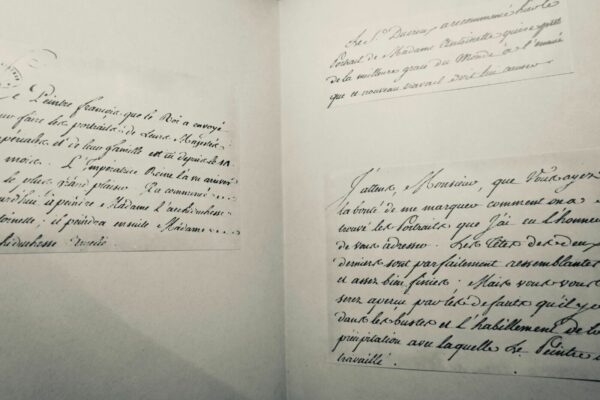 Le Peintre françois que le Roi a envoyé
faire les portraits de Leurs Majestés
Impériales et de leur famille est ici depuis le
mois. L'Impératrice Reine l'a
le plus grand plaisir. Il a commencé
peindre Madame l'archiduchesse
Antoinette; il peindra ensuite Madame
archiduchesse
Le Sr. Ducreux a recommencé hier le
Portrait de Madame Antoinette, qui se prête
de la meilleure grace du Monde à l'ennui
que ce nouveau travail doit lui causer.
J'attens, Monsieur, que Vous ayez
la bonté de me marquer comment on a
trouvé les Portraits que j'ai eu l'honneur
de vous adresser. Les têtes des deux
derniers sont parfaitement ressemblantes
et assez bien finies; Mais vous vous
serez aperçu par les defauts qu'il y
dans les bustes et l'habillement de la
précipitation avec laquelle Le Peintre
travaillé.